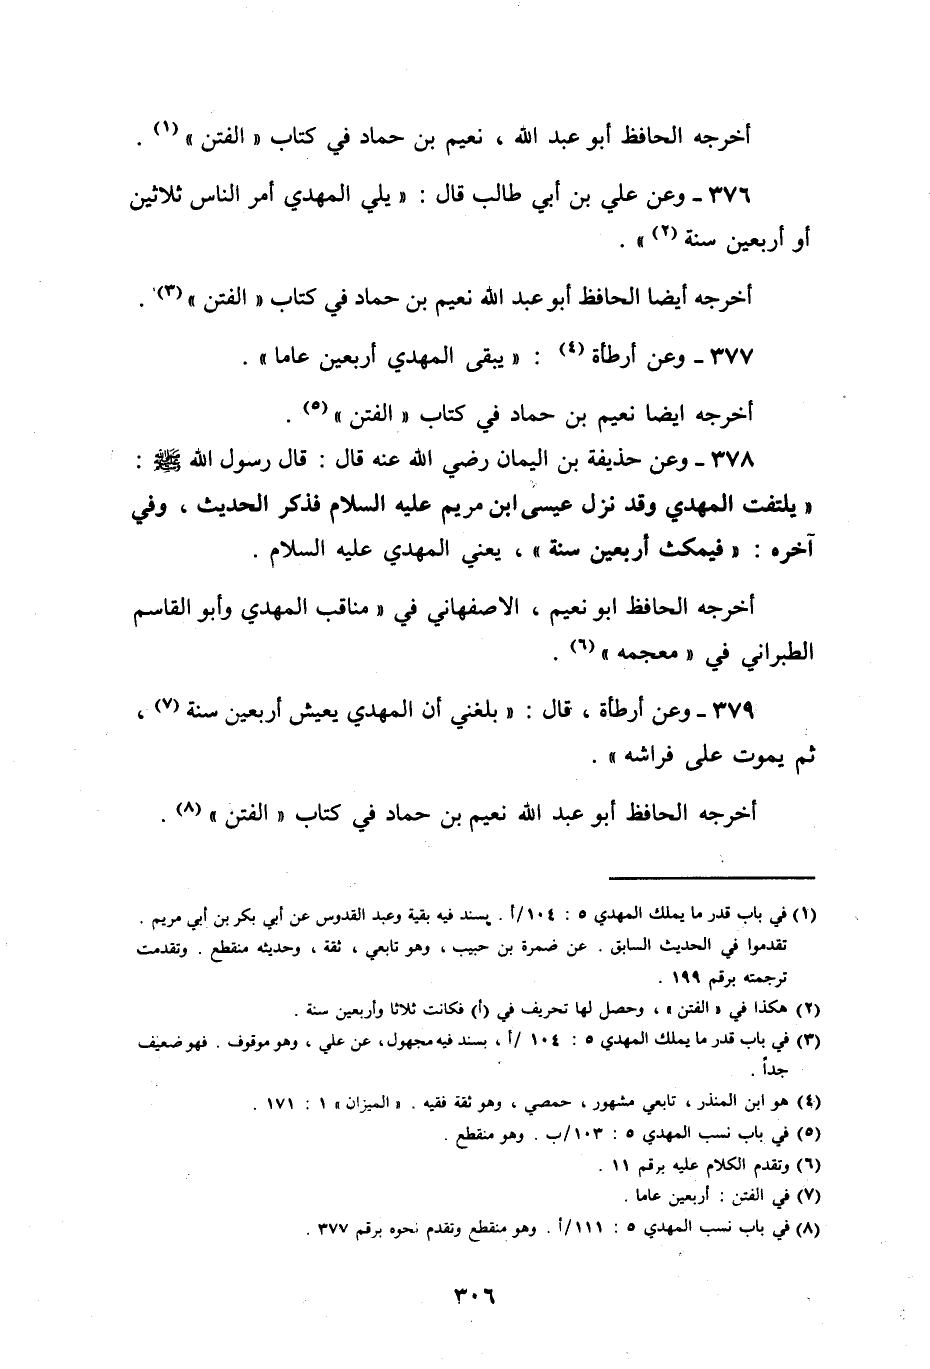 أخرجه الحافظ أبو عبد الله ، نعيم بن حماد في كتاب « الفتن » (١) .
٣٧٦ ـ وعن علي بن أبي طالب قال : « يلي المهدي أمر الناس ثلاثين
أو أربعين سنة (٢) » .
أخرجه أيضا الحافظ أبو عبد الله نعيم بن حماد في كتاب « الفتن » (٣) .
٣٧٧ ـ وعن أرطأة (٤) : « يبقى المهدي أربعين عاما » .
أخرجه ايضا نعيم بن حماد في كتاب « الفتن » (٥) .
٣٧٨ ـ وعن حذيفة بن اليمان رضي الله عنه قال : قال رسول الله ﷺ :
« يلتفت المهدي وقد نزل عيسى ابن مريم عليه السلام فذكر الحديث ، وفي
آخره : « فيمكث أربعين سنة » ، يعني المهدي عليه السلام .
أخرجه الحافظ ابو نعيم ، الاصفهاني في « مناقب المهدي وأبو القاسم
الطبراني في « معجمه » (٦) .
٣٧٩ ـ وعن أرطأة ، قال : « بلغني أن المهدي يعيش أربعين سنة (٧) ،
ثم يموت على فراشه » .
أخرجه الحافظ أبو عبد الله نعيم بن حماد في كتاب « الفتن » (٨) .
(١) في باب قدر ما يملك المهدي ٥ : ١٠٤/أ . يسند فيه بقية وعبد القدوس عن أبي بكر بن أبي مريم .
تقدموا في الحديث السابق . عن ضمرة بن حبيب ، وهو تابعي ، ثقة ، وحديثه منقطع . وتقدمت
ترجمته برقم ١٩٩ .
(٢) هكذا في « الفتن » ، وحصل لها تحريف في (أ) فكانت ثلاثا وأربعين سنة .
(٣) في باب قدر ما يملك المهدي ٥ : ١٠٤ /أ ، بسند فيه مجهول ، عن علي ، وهو موقوف . فهو ضعيف
جداً .
(٤) هو ابن المنذر ، تابعي مشهور ، حمصي ، وهو ثقة فقيه . « الميزان » ١ : ١٧١ .
(٥) في باب نسب المهدي ٥ : ١٠٣/ب . وهو منقطع .
(٦) وتقدم الكلام عليه برقم ١١ .
(٧) في الفتن : أربعين عاما .
(٨) في باب نسب المهدي ٥ : ١١١/أ . وهو منقطع وتقدم نحوه برقم ٣٧٧ .
٣٠٦